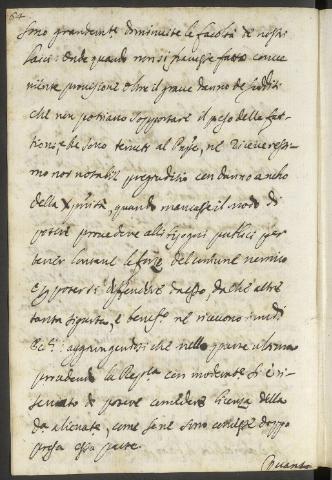 64
sono grandemente diminuite le facoltà de nostri
laici: onde quando non si havesse fatto conve
niente provisione, oltre il grave danno de sudditi
che non potriano sopportare il peso delle fat
tioni, che sono tenuti al Paese, ne riceveressi
mo noi notabil pregiuditio con danno ancho
della Xpnità, quando mancasse il modo di
poter provedere alli bisogni publici per
tener lontane le forze del comune nemico
e p poterci diffendere da esso, da che altre
tanta sicurtà, e benefo ne ricevono i sudi
Eccli: aggiungendosi che nella parte ultima
prudente la Repca con modente si è ri
servata di potere concedere licenza della
da alienate, come se ne sono concesse doppo
presa essa parte.
Quanto